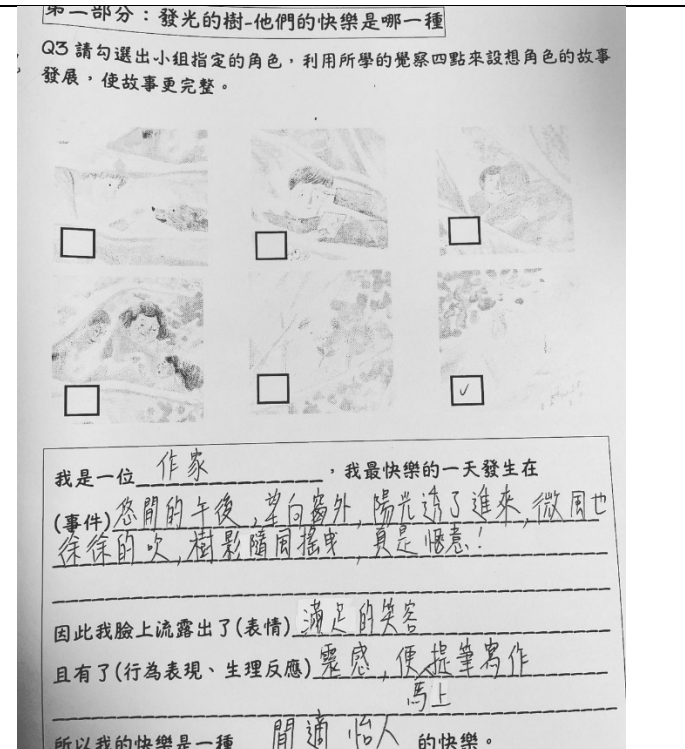 第二部分：發光的樹-他們的快樂是哪一種
Q3 請勾選出小組指定的角色，利用所學的覺察四點來設想角色的故事
發展，使故事更完整。
我是一位 作家 ，我最快樂的一天發生在
(事件)悠閒的午後，望向窗外，陽光透了進來，微風也
徐徐的吹，樹影隨風搖曳，真是愜意！
因此我臉上流露出了(表情) 滿足的笑容
且有了(行為表現、生理反應) 靈感，便提筆寫作
馬上
所以我的快樂是一種 閒適怡人 的快樂。